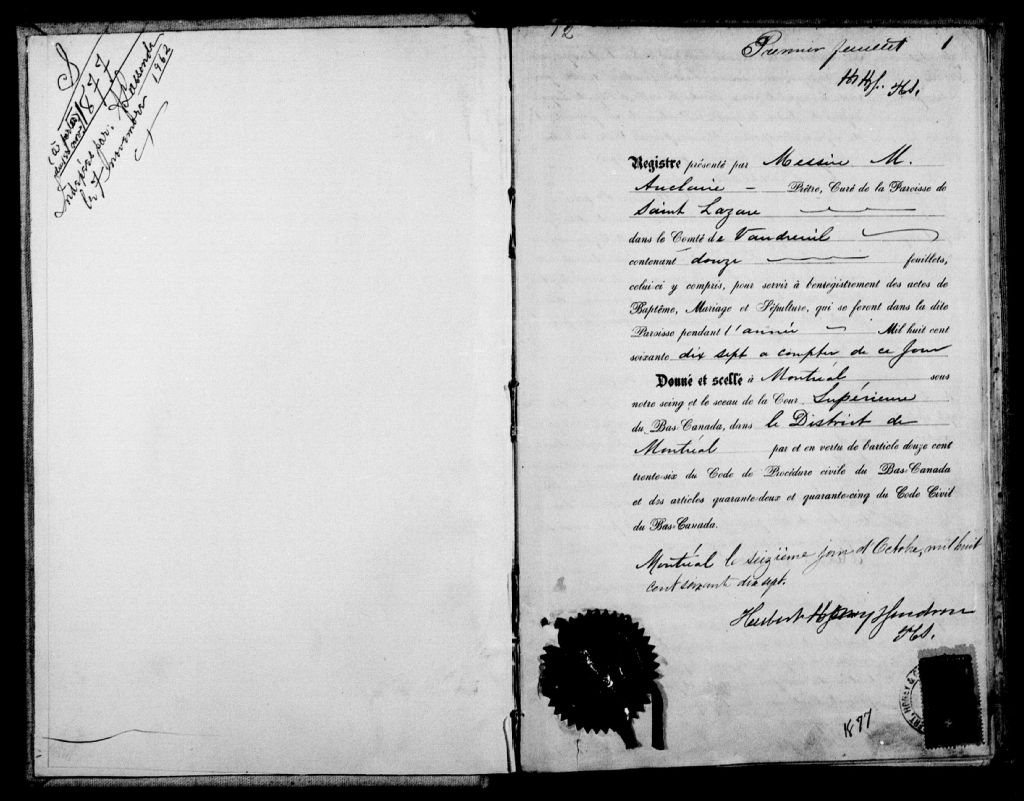 S
1877
(à partir
du
Indexé par: Lassonde
le 7 novembre 1962
12
Premier feuillet 1
Registre présenté par Messire M.
Auclaire – Prêtre, Curé de la Paroisse de
Saint Lazare
dans le Comté de Vaudreuil
contenant douze feuillets,
celui-ci y compris, pour servir à l'enrégistrement des actes de
Baptême, Mariage et Sépulture, qui se feront dans la dite
Paroisse pendant l'année – Mil huit cent
soixante dix sept a compter de ce jour
Donné et scellé à Montréal sous
notre seing et le sceau de la Cour Supérieure
du Bas-Canada, dans le District de
Montréal par et en vertu de l'article douze cent
trente-six du Code de Procédure civile du Bas-Canada
et des articles quarante-deux et quarante-cinq du Code Civil
du Bas-Canada.
Montréal le seizième jour d'Octobre, mil huit
cent soixant dix sept.
Huibert
1877